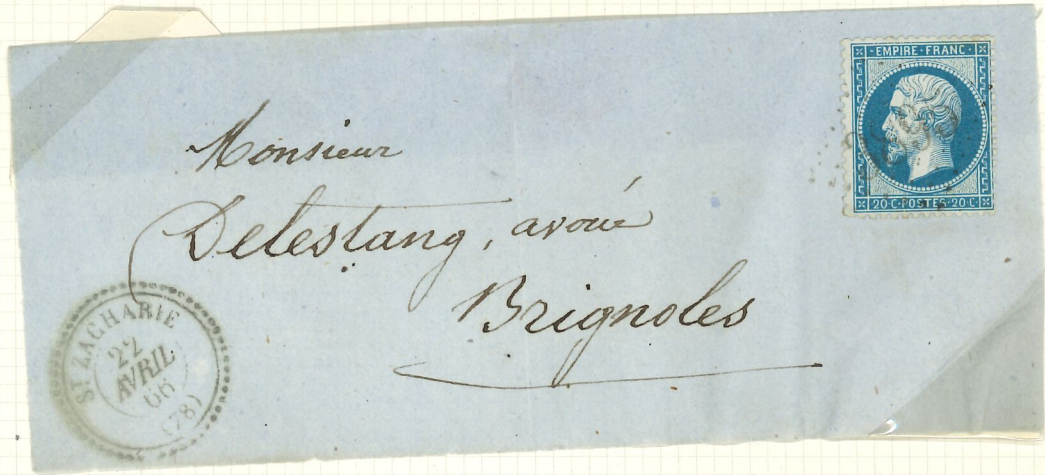 EMPIRE · FRANC ·
20 C · POSTES · 20 C ·
Monsieur
Delestang, avoué
Brignoles
ST ZACHARIE
22
AVRIL
66
(78)